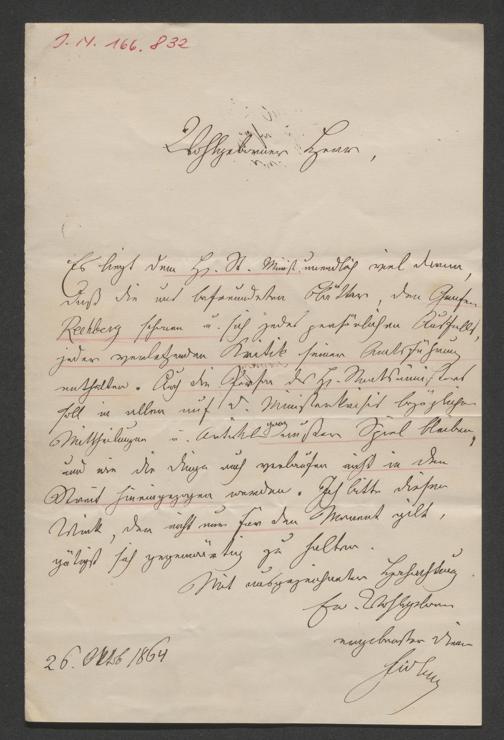 J. N. 166.832
Wohlgeborner Herr,
Es liegt dem H. St. Minist. unendlich viel daran,
daß die uns befreundeten Blätter, den Grafen
Rechberg schonen u. sich jedes persönlichen Ausfalls,
jeder verletzenden Kritik seiner Amtsführung
enthalten. Auch die Person des H. Staatsministers
soll in allen auf d. Ministerkrisis bezüglichen
Mittheilungen u. Artikeln ganz außer Spiel bleiben,
und wie die Dinge auch verlaufen nicht in den
Streit hineingezogen werden. Ich bitte diesen
Wink, der nicht nur für den Moment gilt,
gütigst sich gegenwärtig zu halten.
Mit ausgezeichneter Hochachtung
Ew. Wohlgeboren
ergebenster Diener
26. Oktob 1864